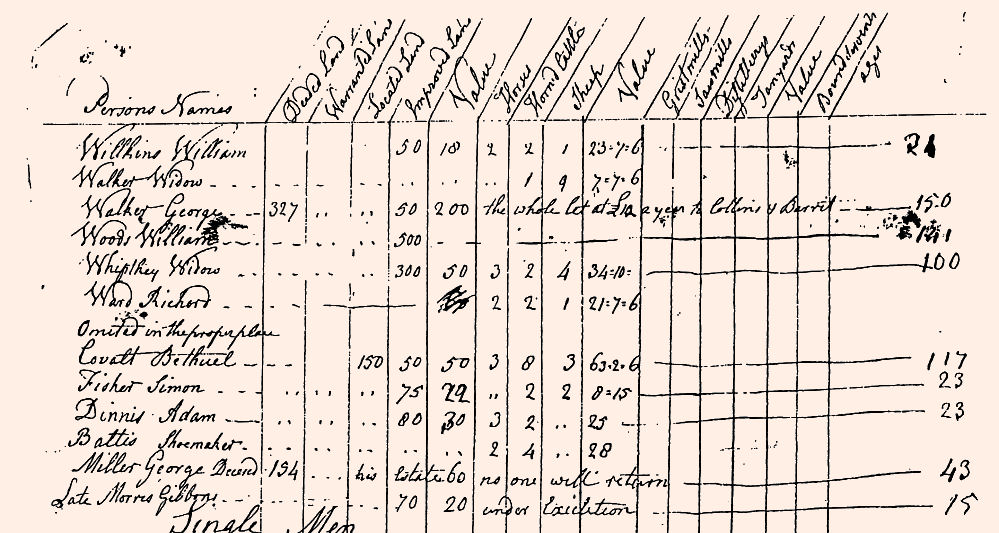 Persons Names Deeded Land Warranted Land Located Land Improved Land Value Horses Horned Cattle Sheep Value Gristmills Sawmills Distillerys Tanyards Value Bound servants ages
Wilkins William 50 18 2 2 1 23=7=6
Walker Widow 1 9 7=7=6
Walker George 327 50 200 the whole let at a year to Collins & 150
Woods William 500
Whiplkey Widow 300 50 3 2 4 34=10= 100
Ward Richord 2 2 1 21=7=6
Omited in the proper place
Covalt Bethuel 150 50 50 3 8 3 63=2=6 117
Fisher Simon 75 2 2 8=15 23
Dinnis Adam 80 30 3 2 25 23
Battis Shoemaker 2 4 28
Miller George Deceasd 154 his Estate 60 no one will return 43
Late Morris Gibbons 70 20 under Exicution 15
Single Men